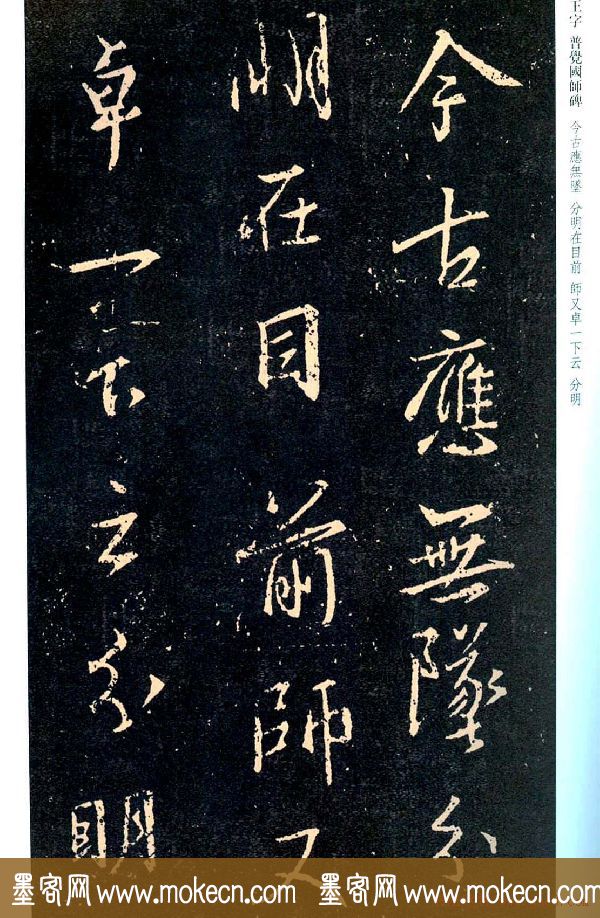 王字 普覺國師碑 今古應無墜 分明在目前 師又卓一下云 分明
今古應無墜分
明在目前師又
卓一下云分明
墨客网 www.mokecn.com 墨客网 www.mokecn.com